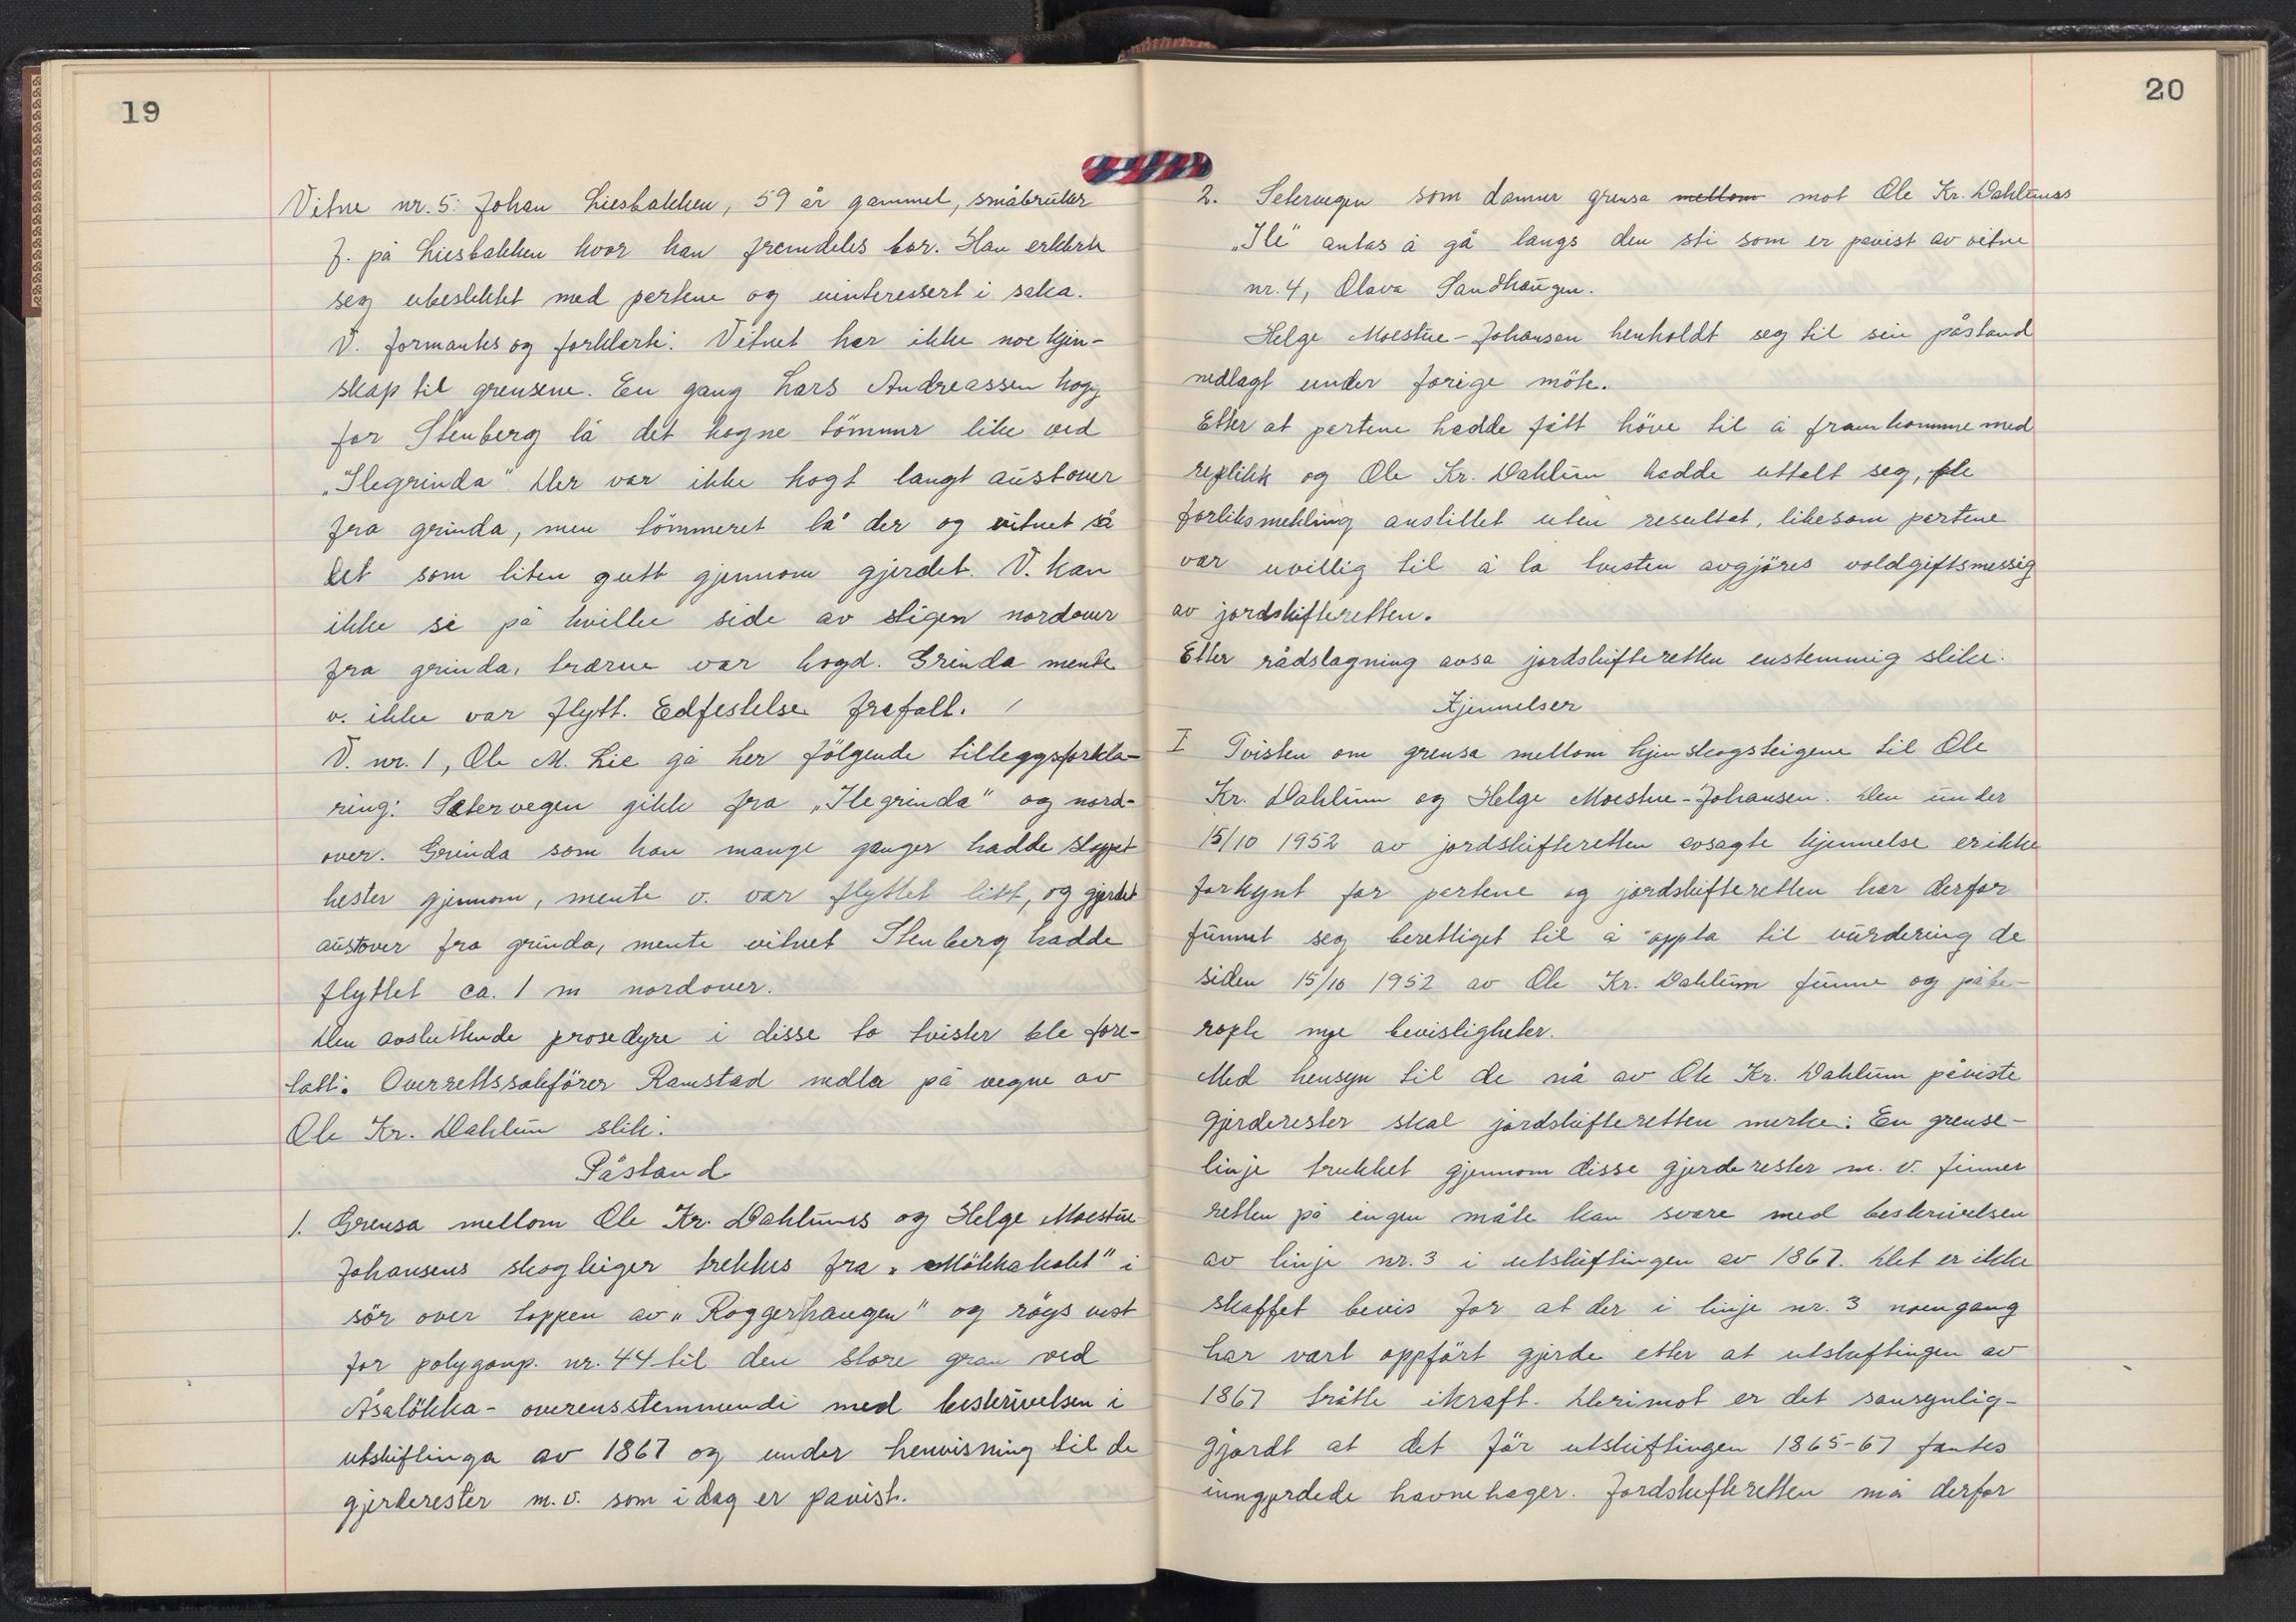 19
Vitne nr. 5: Johan Liesbakken, 59 år gammel, småbruker
f. på Liesbakken hvor han fremdeles bor. Han erklærte
seg ubeslektet med partene og uinteressert i saka.
V. formantes og forklarte: Vitnet har ikke noe kjen-
skap til grensene. En gang Lars Andreassen hogg
for Stenberg lå det hogne tömmer like ved
„Ilegrinda" Der var ikke hogt langt austover
fra grinda, men tömmeret lå der og vitnet så
det som liten gutt gjennom gjerdet. V. kan
ikke si på hvilke side av stigen nordover
fra grinda, trærne var hogd. Grinda mente
v. ikke var flytt. Edfestelse frafalt. /
V. nr. 1, Ole M. Lie ga her fölgende tilleggsforkla-
ring: Setervegen gikk fra „Ilegrinda" og nord-
over. Grinda som han mange ganger hadde sloppet
hester gjennom, mente v. var flyttet litt, og gjerdet
austover fra grinda, mente vitnet Stenberg hadde
flyttet ca. 1 m nordover.
Den avsluttende prosedyre i disse to tvister ble fore-
tatt. Overrettssakförer Ramstad nedla på vegne av
Ole Kr. Dahlum slik:
Påstand
1. Grensa mellom Ole Kr. Dahlums og Helge Moestue
Johansens skogteiger trekkes fra „Mökkakoht" i
sör over toppen av „Roggerhaugen" og röys vest
for polygonp. nr. 44 til den store gran ved
Åsalökka - overensstemmende med beskrivelsen i
utskiftinga av 1867 og under henvisning til de
gjerderester m.v. som i dag er påvist.
20
2. Setervegen som danner grensa mellom mot Ole Kr. Dahlums
„Ile" antas å gå langs den sti som er påvist av vitne
nr. 4, Olava Sandhaugen.
Helge Moestue-Johansen henholdt seg til sin påstand
nedlagt under forige möte.
Etter at partene hadde fått höve til å framkomme med
replikk og Ole Kr. Dahlum hadde uttalt seg, ble
forliksmekling anstillet uten resultat, likesom partene
var uvillig til å la tvisten avgjöres voldgiftsmessig
av jordskifteretten.
Etter rådslagning avsa jordskifteretten enstemmig slike:
Kjennelser
I Tvisten om grensa mellom hjemskogsteigene til Ole
Kr. Dahlum og Helge Moestue-Johansen. Den under
15/10 1952 av jordskifteretten avsagte kjennelse er ikke
forkynt for partene og jordskifteretten har derfor
funnet seg berettiget til å oppta til vurdering de
siden 15/10 1952 av Ole Kr. Dahlum funne og påbe-
ropte nye bevisligheter.
Med hensyn til de nå av Ole Kr. Dahlum påviste
gjerderester skal jordskifteretten merke: En grense-
linje trukket gjennom disse gjerderester m.v. finner
retten på ingen måte kan svare med beskrivelsen
av linje nr. 3 i utskiftingen av 1867. Det er ikke
skaffet bevis for at der i linje nr. 3 noengang
har vært oppfört gjerde etter at utskiftingen av
1867 trådte ikraft. Derimot er det sansynlig-
gjordt at det för utskiftingen 1865-67 fantes
inngjerdede havnehager. Jordskifteretten må derfor